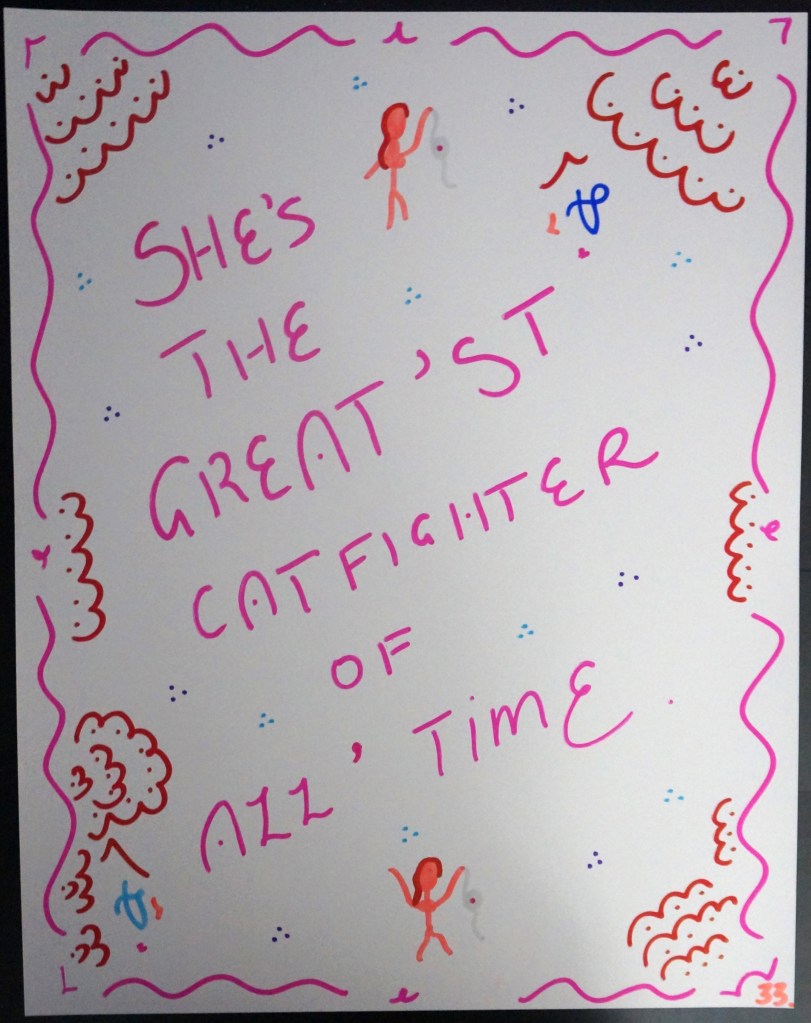 SHE'S
THE
GREAT'ST
CATFIGHTER
OF
ALL' TIME
33.